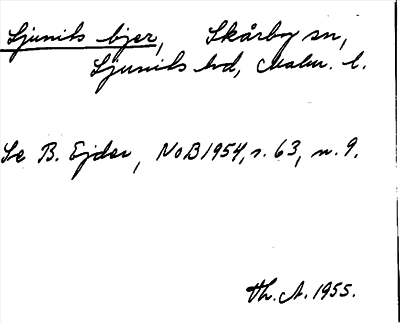 Ljunits bjer, Skårby sn,
Ljunits hd, Malm. l.
Se B. Ejder, NoB 1954, s. 63, n. 9.
Th. A. 1955.